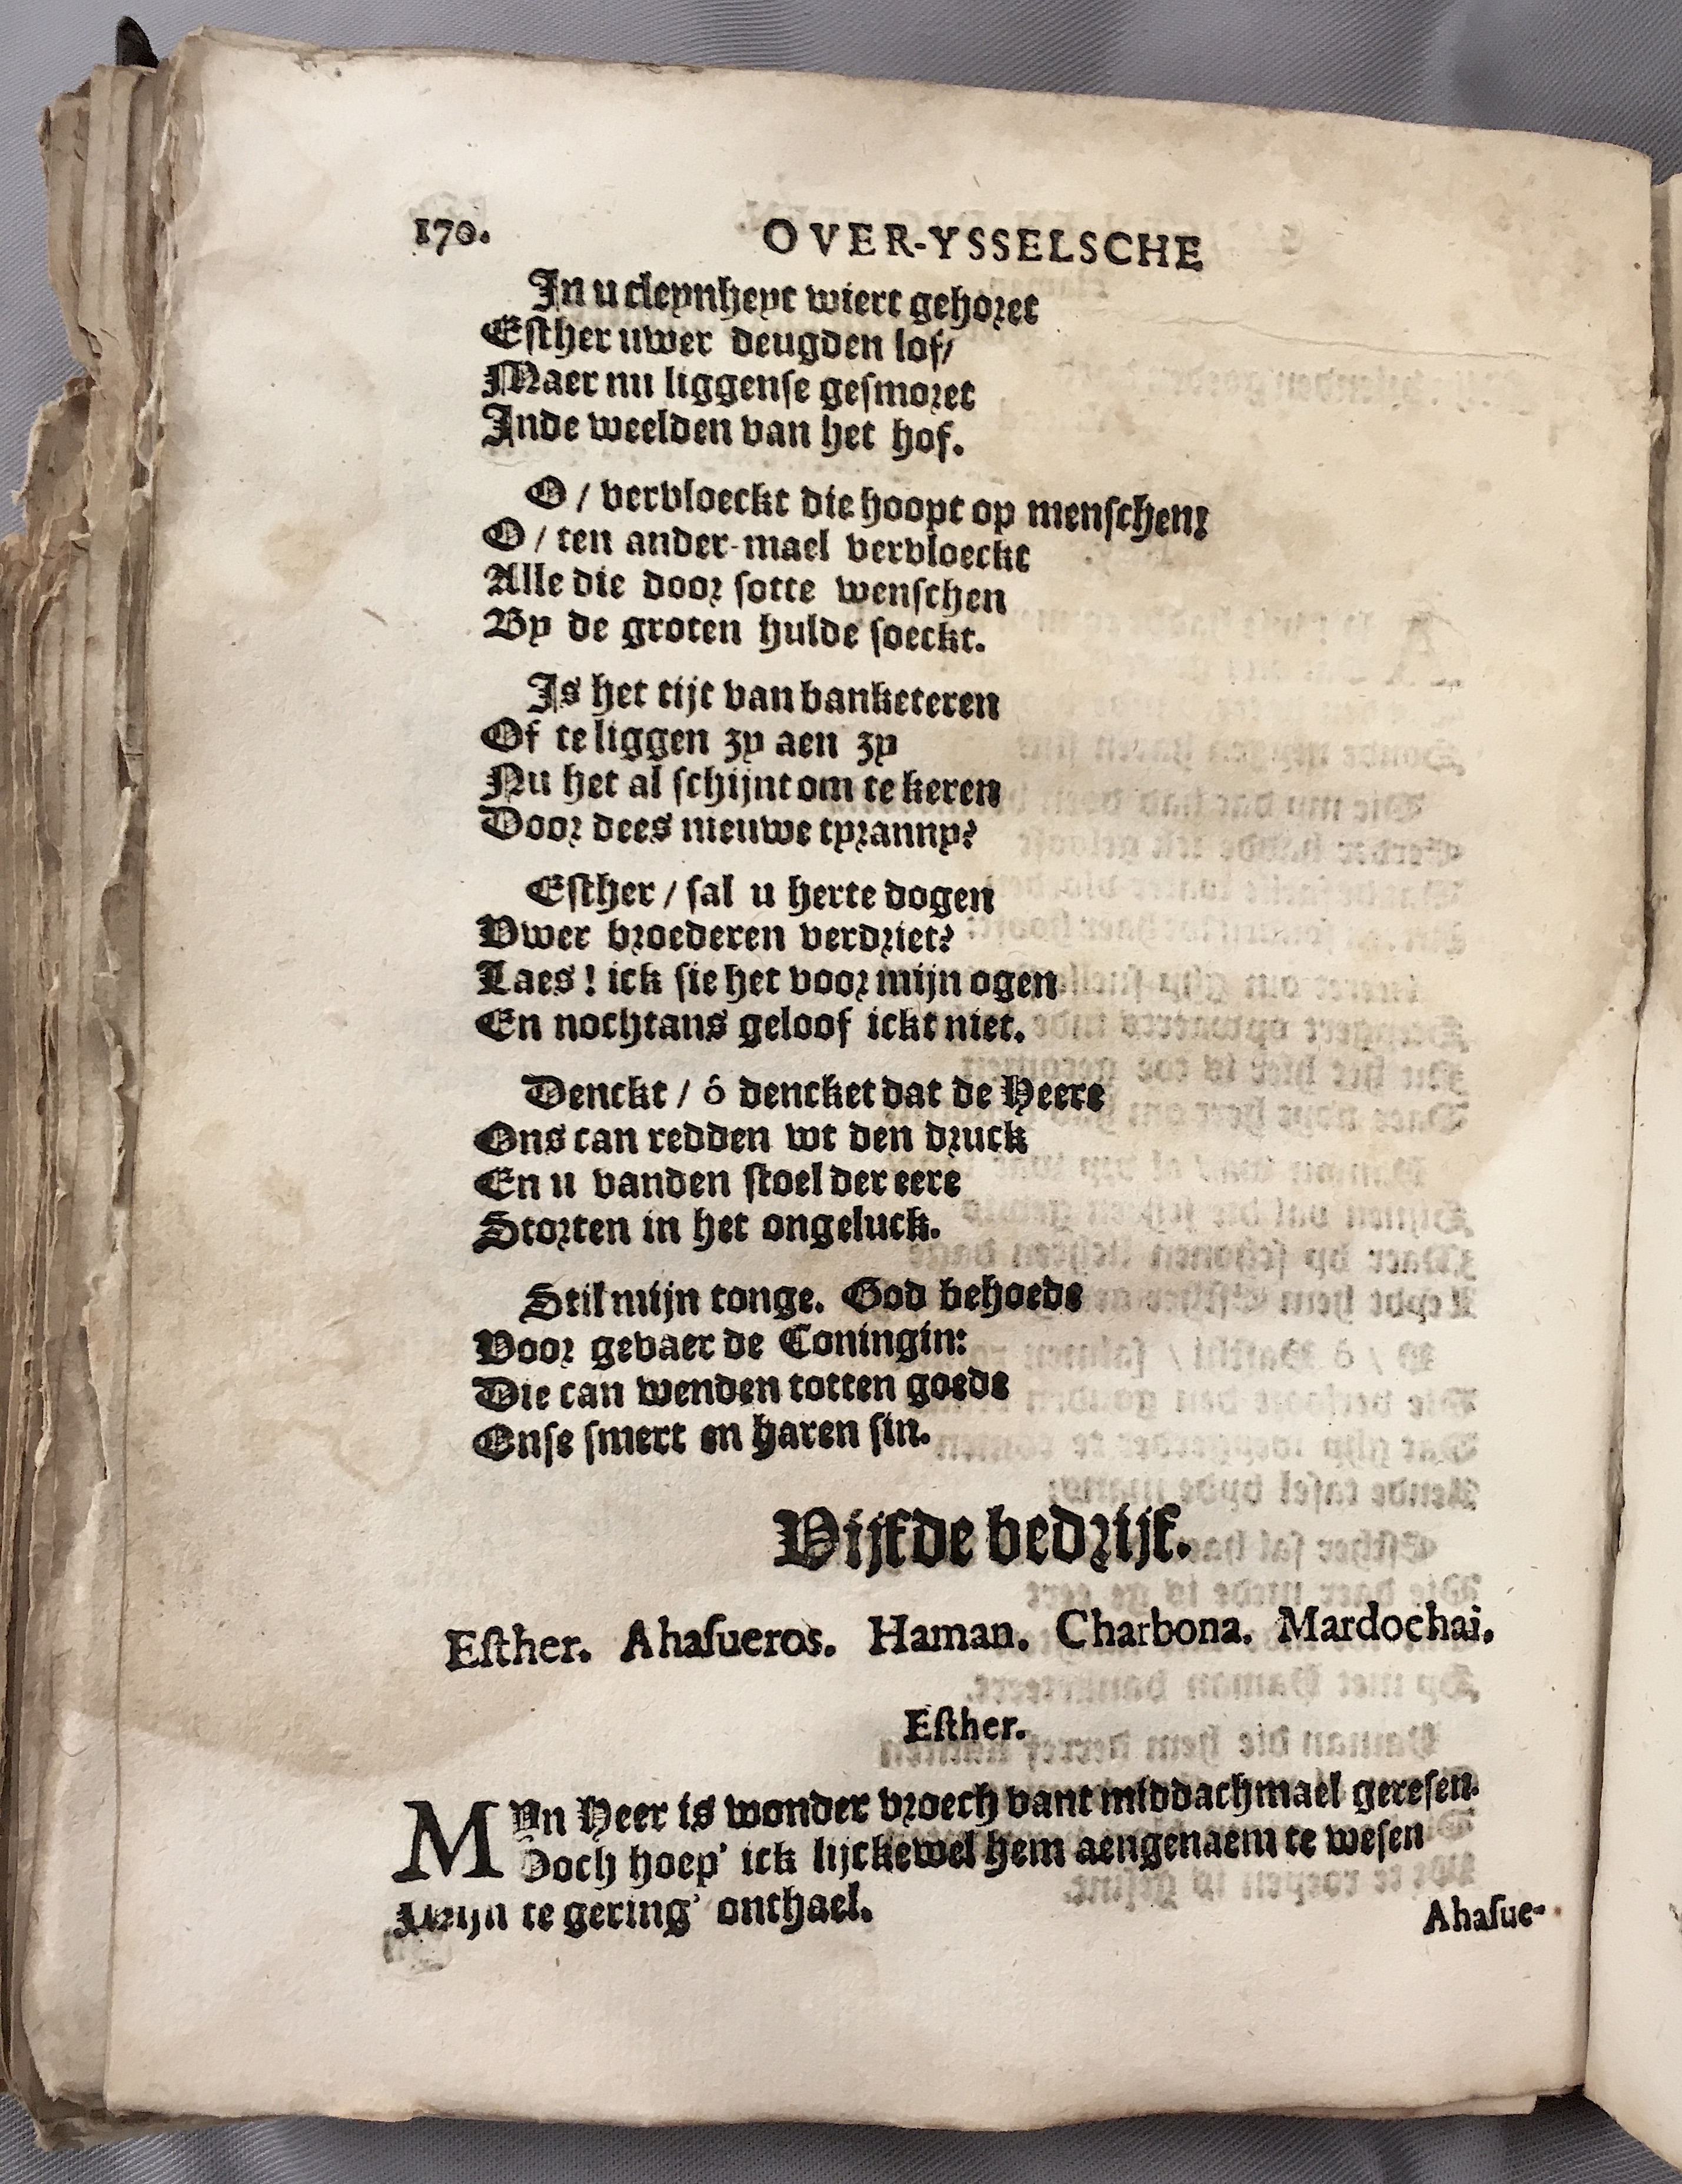 170. OVER-YSSELSCHE
In u cleynheyt wiert gehoret
Esther uwer deugden lof/
Maer nu liggense gesmoret
Inde weelden van het hof.
O / vervloeckt die hoopt op menschen!
O / ten ander-mael vervloeckt
Alle die door sotte wenschen
By de groten hulde soeckt.
Is het tijt van banketeren
Of te liggen zy aen zy
Nu het al schijnt om te keren
Door dees nieuwe tyranny?
Esther / sal u herte dogen
Vwer broederen verdriet?
Laes! ick sie het voor mijn ogen
En nochtans geloof ickt niet.
Denckt / ô dencket dat de Heere
Ons can redden wt den druck
En u vanden stoel der eere
Storten in het ongeluck.
Stil mijn tonge. God behoede
Voor gevaer de Coningin:
Die can wenden totten goede
Onse smert en haren sin.
Vijfde bedrijf.
Esther. Ahasueros. Haman. Charbona. Mardochai.
Esther.
MYn Heer is wonder vroech vant middachmael geresen.
Doch hoep' ick lijckewel hem aengenaem te wesen
Mijn te gering' onthael.
Ahasue-